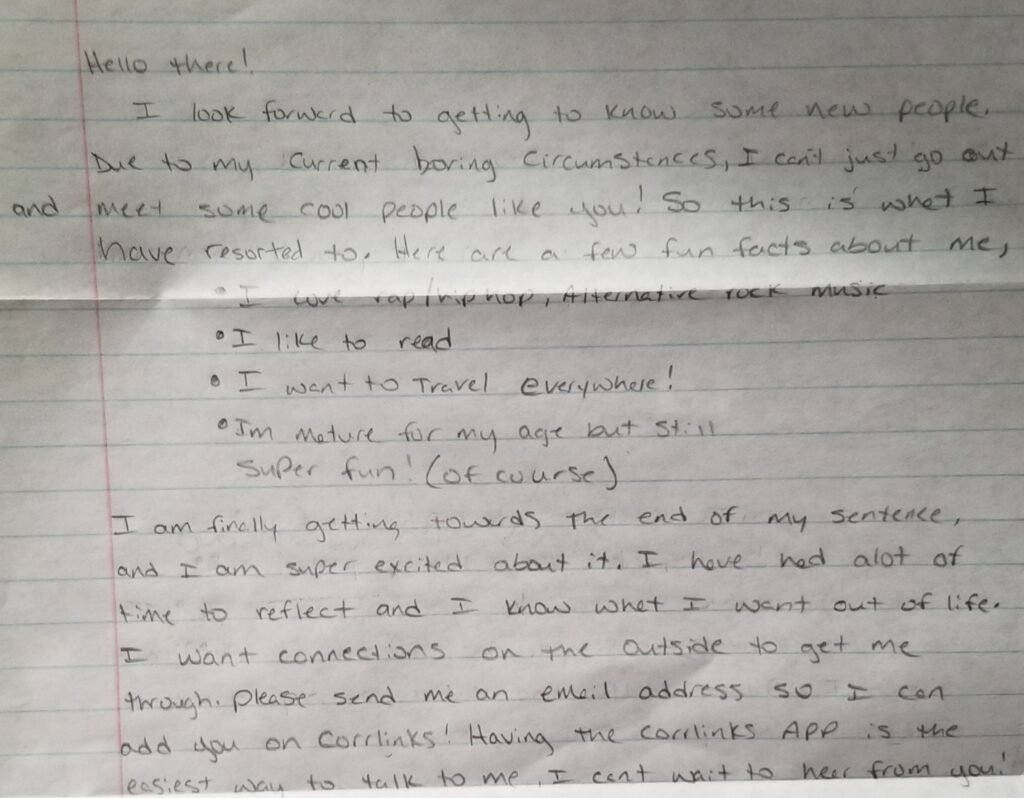 Hello there!
I look forward to getting to know some new people.
Due to my current boring circumstances, I can't just go out
and meet some cool people like you! So this is what I
have resorted to. Here are a few fun facts about me,
• I love rap/hip hop, Alternative rock music
• I like to read
• I want to Travel everywhere!
• Im mature for my age but still
super fun! (of course)
I am finally getting towards the end of my sentence,
and I am super excited about it. I have had alot of
time to reflect and I know what I want out of life.
I want connections on the outside to get me
through. Please send me an email address so I can
add you on Corrlinks! Having the corrlinks APP is the
easiest way to talk to me. I cant wait to hear from you!